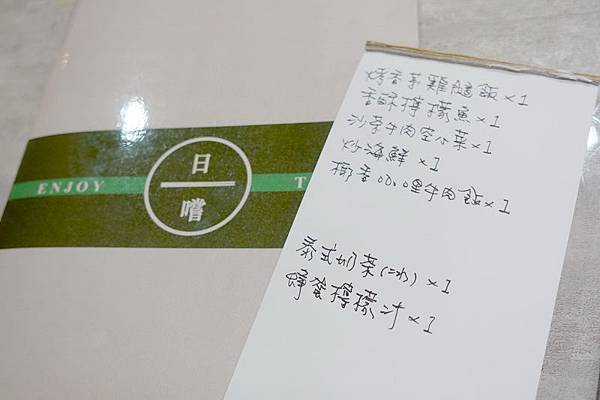 ENJOY
日
嚐
T
烤香茅雞腿飯x1
香酥檸檬魚x1
沙茶牛肉空心菜x1
炒海鮮 x1
椰香咖哩牛肉飯x1
泰式奶茶(冰) x1
蜂蜜檸檬汁x1